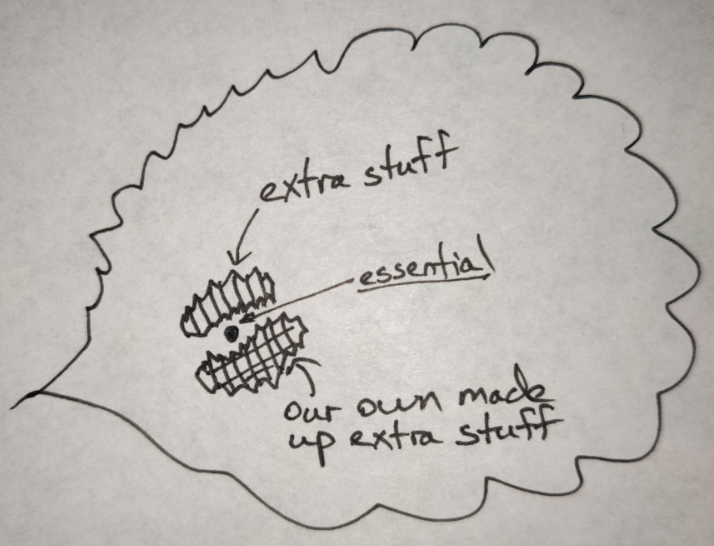 extra stuff
essential
our own made
up extra stuff